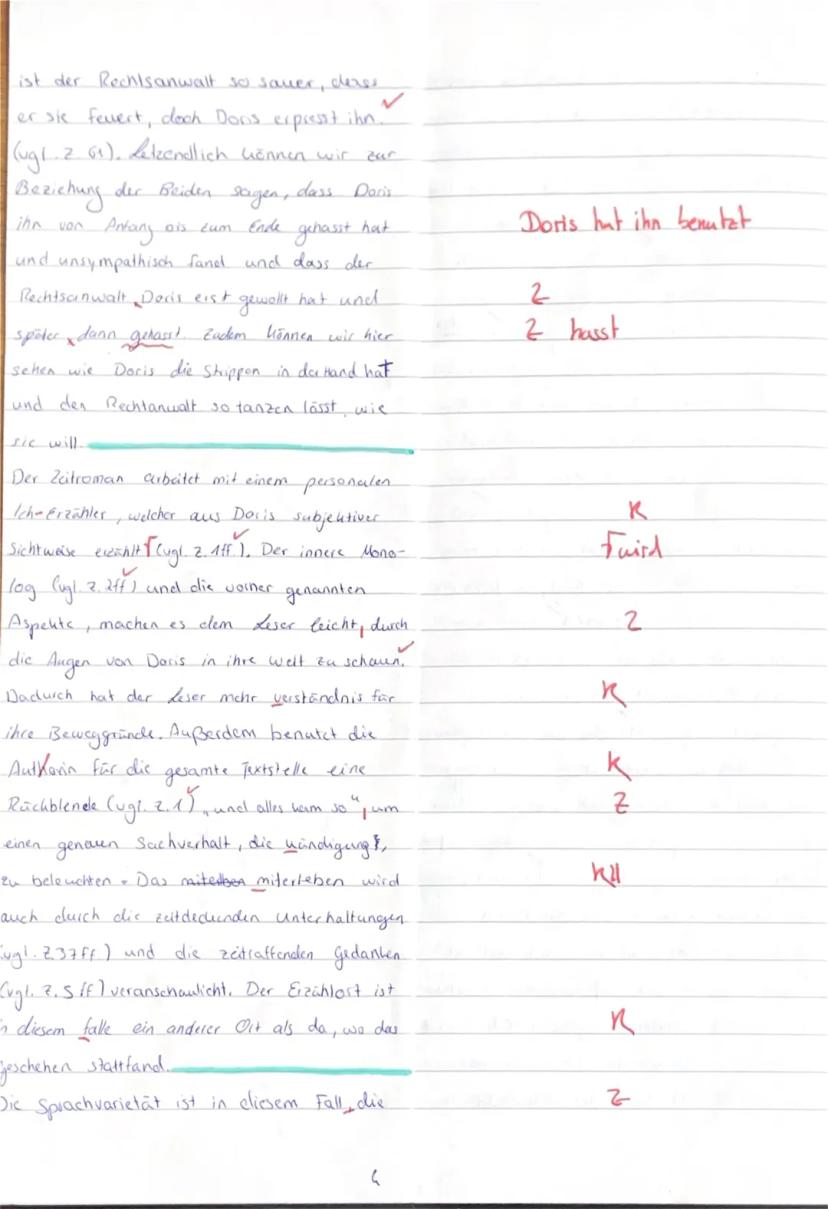 ist der Rechtsanwalt so sauer, dass
er sie feuert, doch Doris erpresst ihn.
(vgl. Z 61). Letzendlich können wir zur
Beziehung der Beiden sagen, dass Doris
ihn von Anfang bis zum Ende gehasst hat
Doris hat ihn benutzt
und unsympathisch fand und dass der
Rechtsanwalt Doris erst gewollt hat und
Z
später dann gehasst. Zudem können wir hier
Z hasst
sehen wie Doris die Strippen in der Hand hat
und den Rechtanwalt so tanzen lässt, wie
sie will.
Der Zeitroman arbeitet mit einem personalen
Ich-Erzähler, welcher aus Doris subjektiver
K
Sichtweise erzählt (vgl. Z. 1ff.). Der innere Mono-
wird
log (vgl. Z. 2ff) und die vorher genannten
Aspekte, machen es dem Leser leicht, durch
Z
die Augen von Doris in ihre Welt zu schauen.
Dadurch hat der Leser mehr verständnis für
K
ihre Beweggründe. Außerdem benutzt die
Authorin für die gesamte Textstelle eine
K
Rückblende (vgl. Z. 1) „und alles kam so“, um
Z
einen genauen Sachverhalt, die kündigung,
zu beleuchten. Das miterleben wird
K
auch durch die zeitdeckenden Unterhaltungen
(vgl. Z 37ff) und die zeitraffenden Gedanken
(vgl. Z. 5ff) veranschaulicht. Der Erzählort ist
in diesem falle ein anderer Ort als da, wo das
K
geschehen stattfand.
Die Sprachvarietät ist in diesem Fall, die
Z